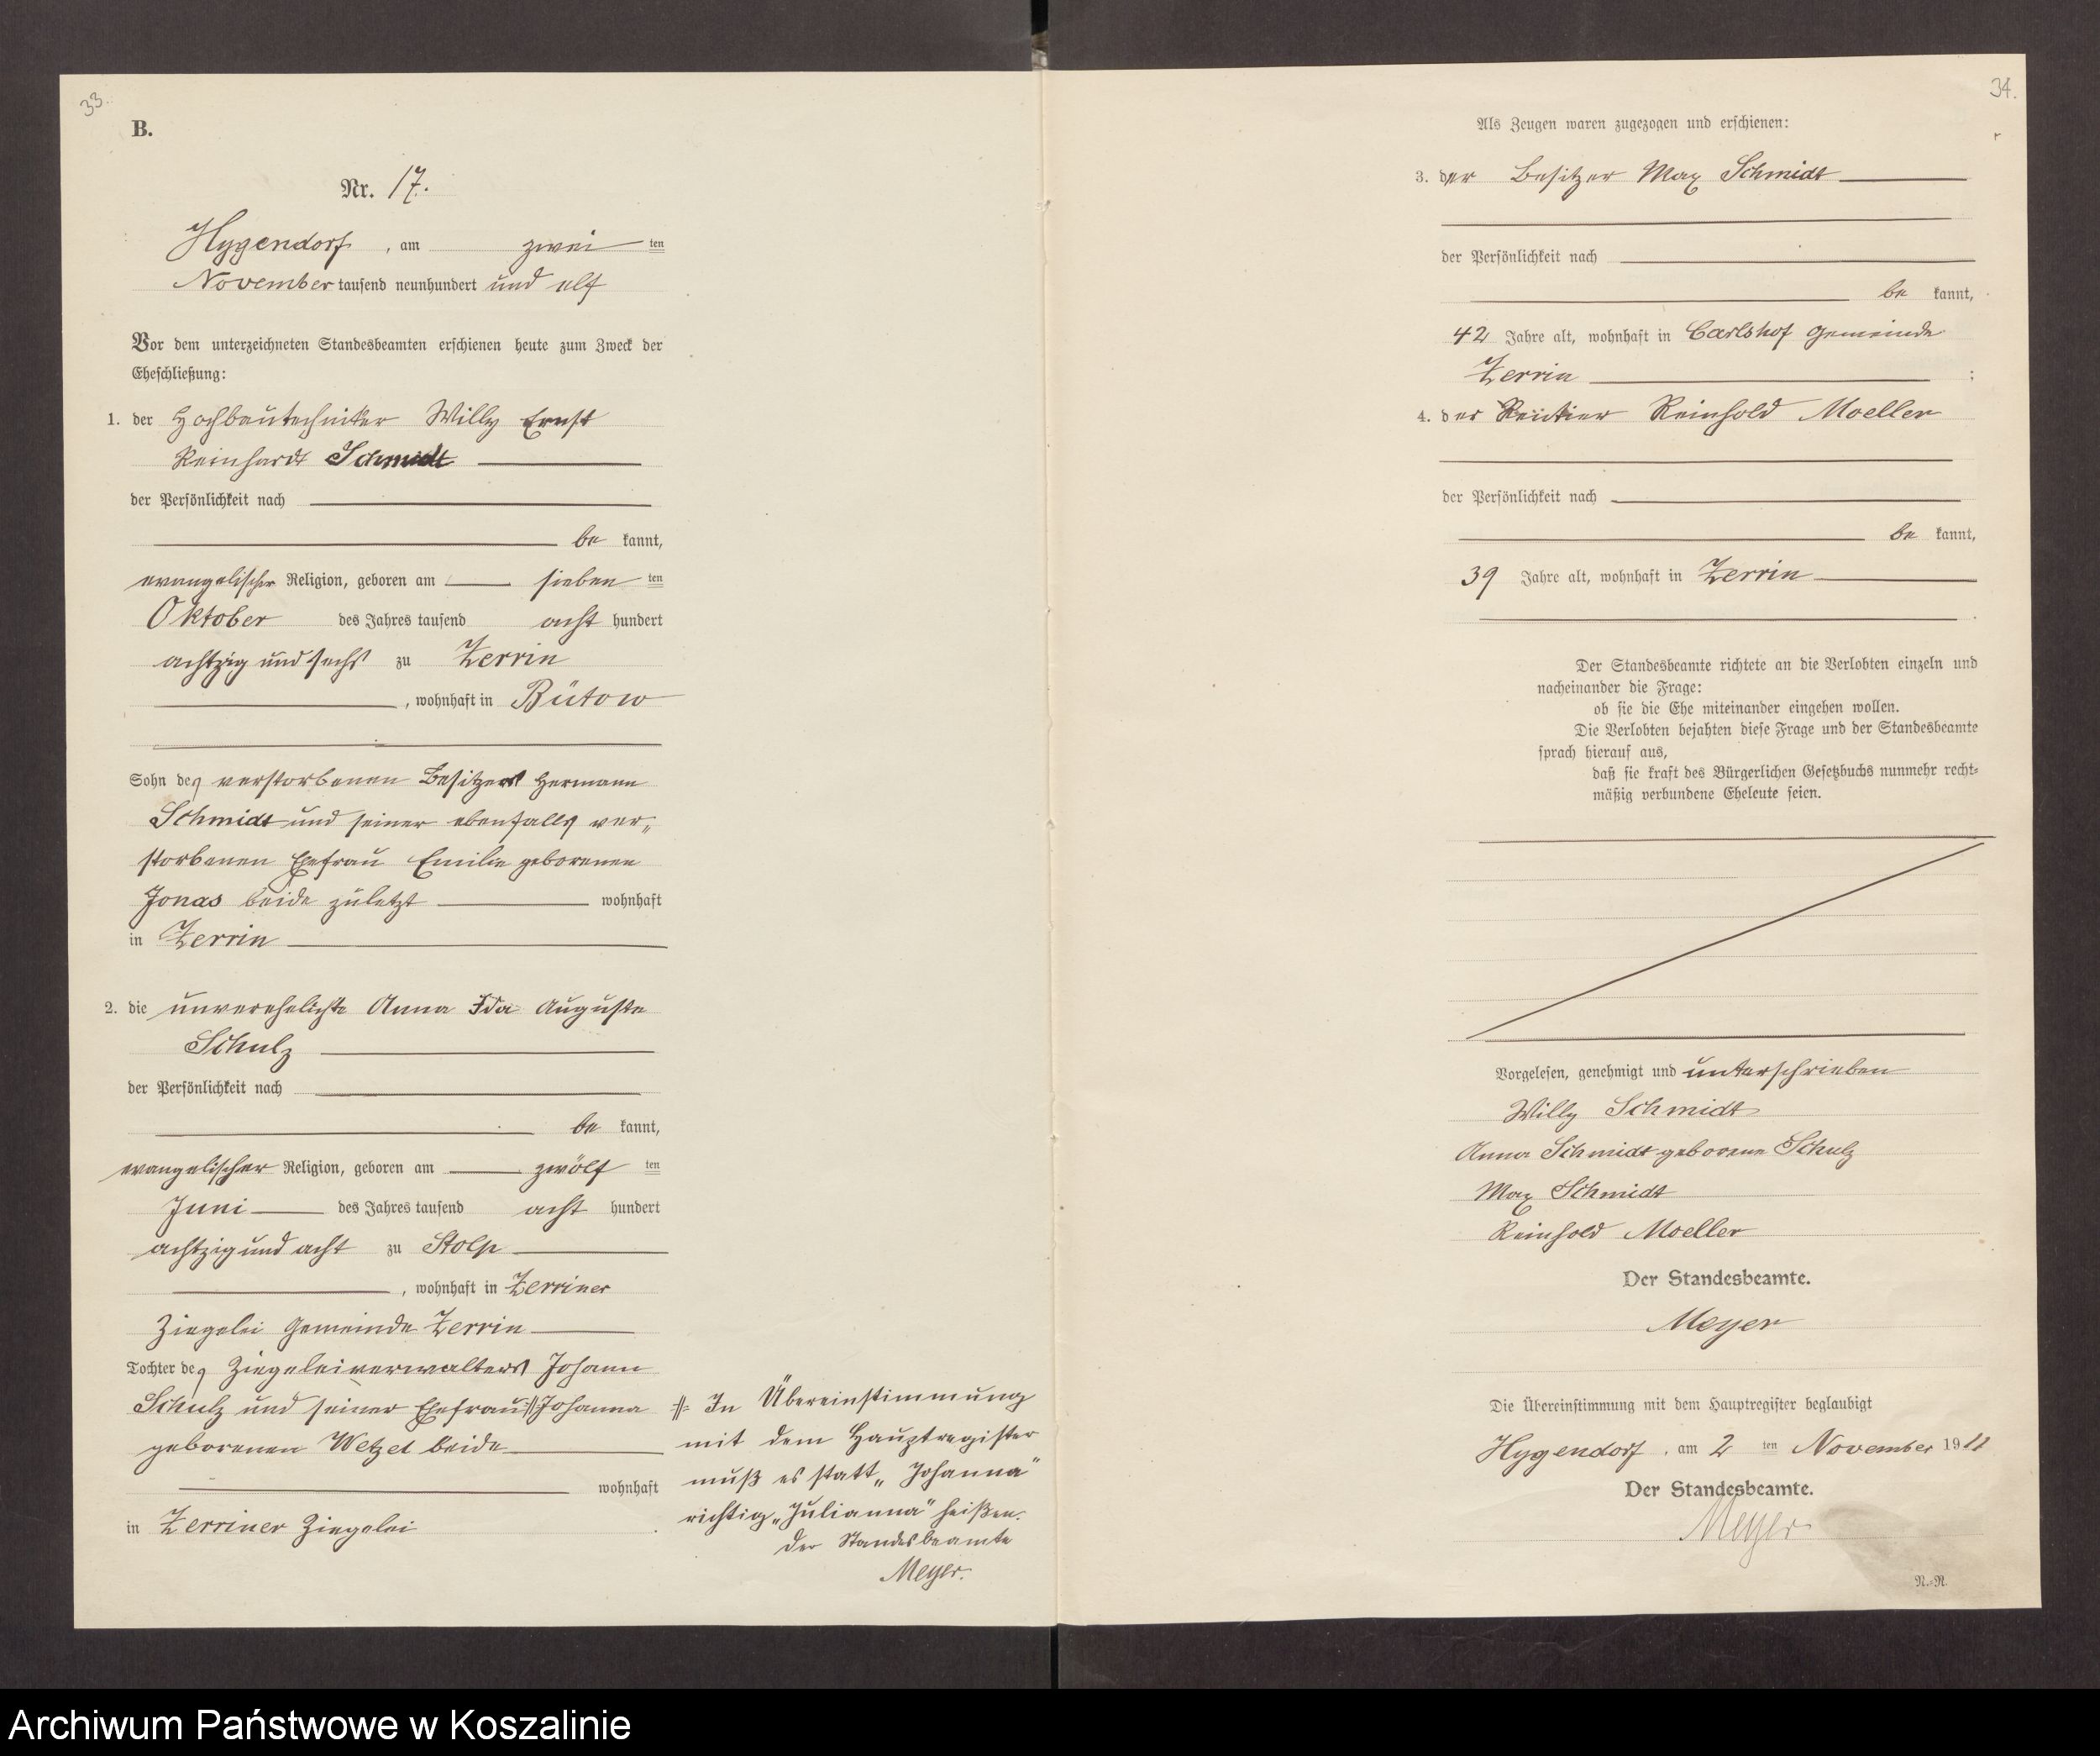 33.
B.
Nr. 17.
Hygendorf, am zwei ten
November tausend neunhundert und elf
Vor dem unterzeichneten Standesbeamten erschienen heute zum Zweck der
Eheschließung:
1. der Hochbautechniker Willy Ernst
Reinhardt Schmidt
der Persönlichkeit nach
be kannt,
evangelischer Religion, geboren am sieben ten
Oktober des Jahres tausend acht hundert
achtzig und sechs zu Zerrin
, wohnhaft in Bütow
Sohn des verstorbenen Besitzers Hermann
Schmidt und seiner ebenfalls ver„
storbenen Ehefrau Emilie geborenen
Jonas beide zuletzt wohnhaft
in Zerrin
2. die unverehelichte Anna Ida Auguste
Schulz
der Persönlichkeit nach
be kannt,
evangelischer Religion, geboren am zwölf ten
Juni des Jahres tausend acht hundert
achtzig und acht zu Stolp
, wohnhaft in Zerriner
Ziegelei Gemeinde Zerrin
Tochter des Ziegeleiverwalters Johann
Schulz und seiner Ehefrau Johanna
geborenen Wetzel beide
wohnhaft
in Zerriner Ziegelei
In Übereinstimmung
mit dem Hauptregister
muß es statt „Johanna"
richtig „Julianna" heißen.
Der Standesbeamte
Meyer.
34.
Als Zeugen waren zugezogen und erschienen:
3. der Besitzer Max Schmidt
der Persönlichkeit nach
be kannt,
42 Jahre alt, wohnhaft in Carlshof Gemeinde
Zerrin ;
4. der Rentier Reinhold Moeller
der Persönlichkeit nach
be kannt,
39 Jahre alt, wohnhaft in Zerrin
.
Der Standesbeamte richtete an die Verlobten einzeln und
nacheinander die Frage:
ob sie die Ehe miteinander eingehen wollen.
Die Verlobten bejahten diese Frage und der Standesbeamte
sprach hierauf aus,
daß sie kraft des Bürgerlichen Gesetzbuchs nunmehr recht-
mäßig verbundene Eheleute seien.
Vorgelesen, genehmigt und unterschrieben
Willy Schmidt
Anna Schmidt geborene Schulz
Max Schmidt
Reinhold Moeller
Der Standesbeamte.
Meyer
Die Übereinstimmung mit dem Hauptregister beglaubigt
Hygendorf, am 2 ten November 1911
Der Standesbeamte.
Meyer
N.-N.
Archiwum Państwowe w Koszalinie